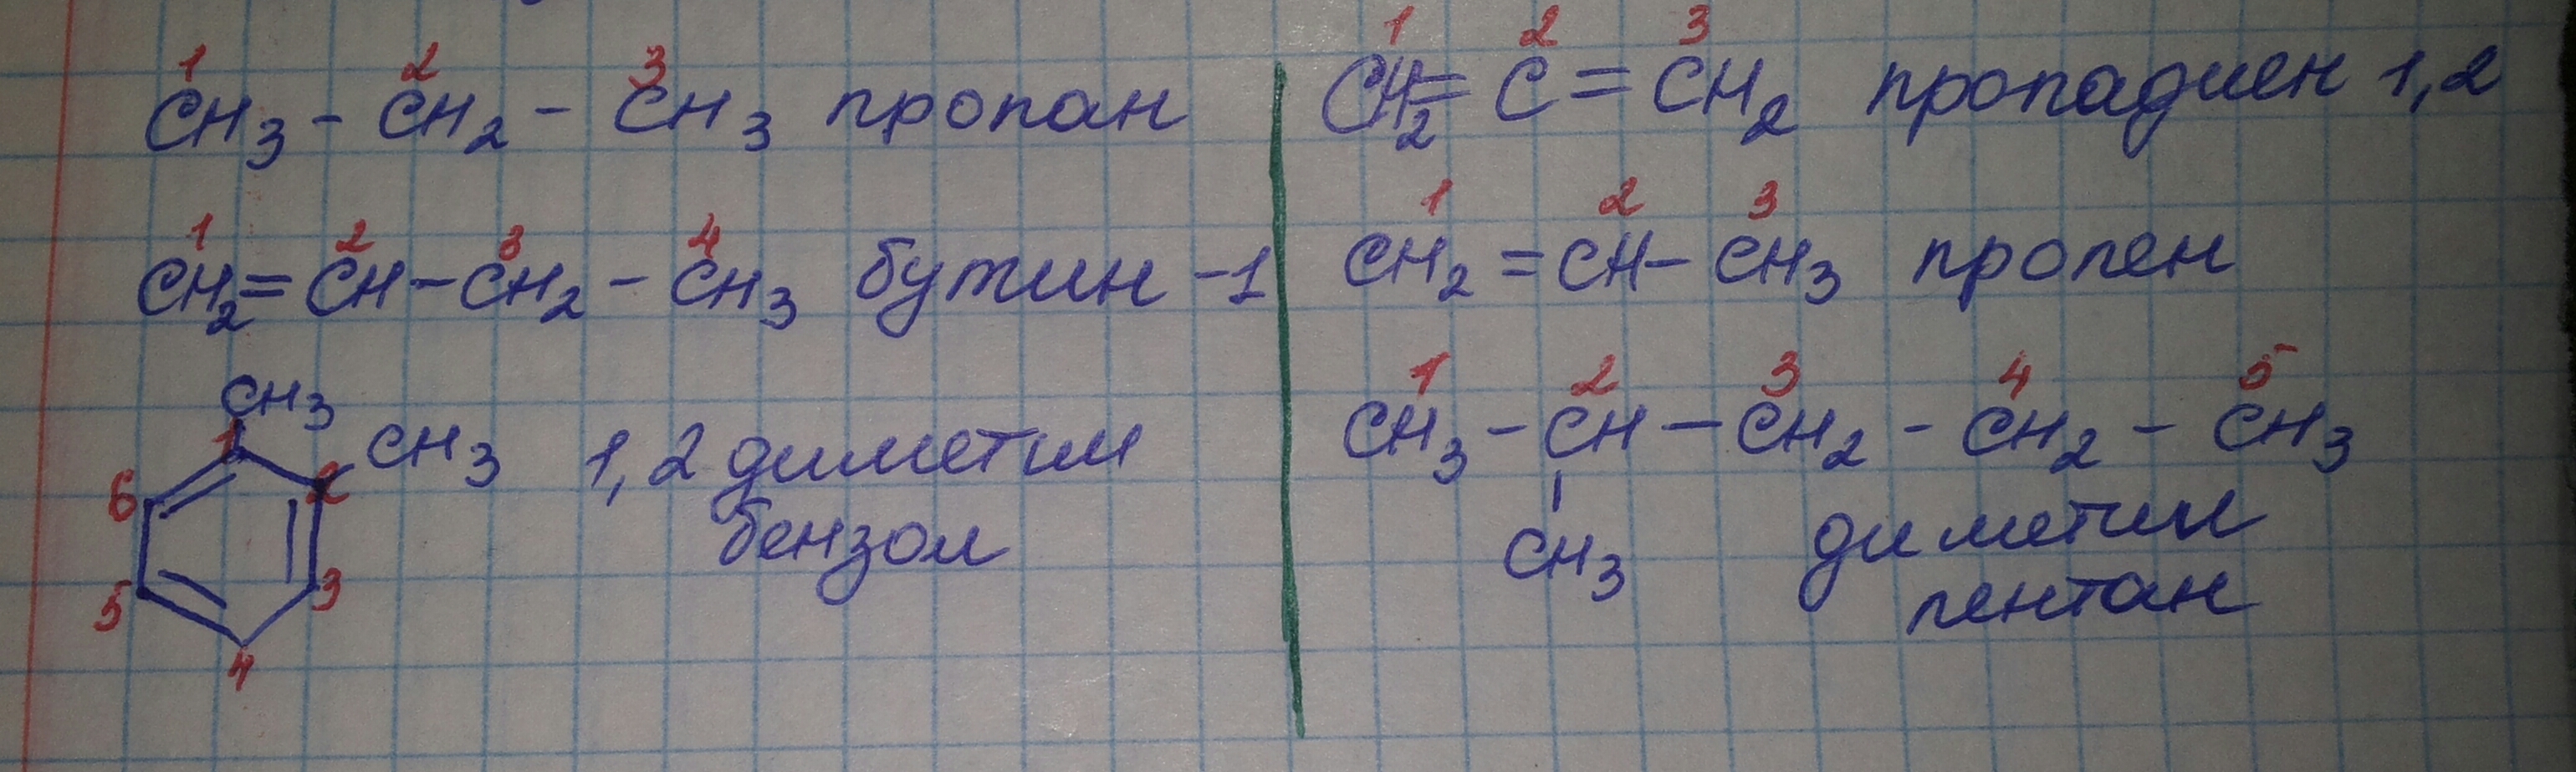 1 2 3
CH₃ - CH₂ - CH₃ пропан
1 2 3 4
CH₂ = CH - CH₂ - CH₃ бутин -1
CH₃
1 CH₃ 1,2 диметил
6 2
бензол
5 3
4
1 2 3
CH₂ = C = CH₂ пропадиен 1,2
1 2 3
CH₂ = CH - CH₃ пропен
1 2 3 4 5
CH₃ - CH - CH₂ - CH₂ - CH₃
CH₃ диметил
пентан